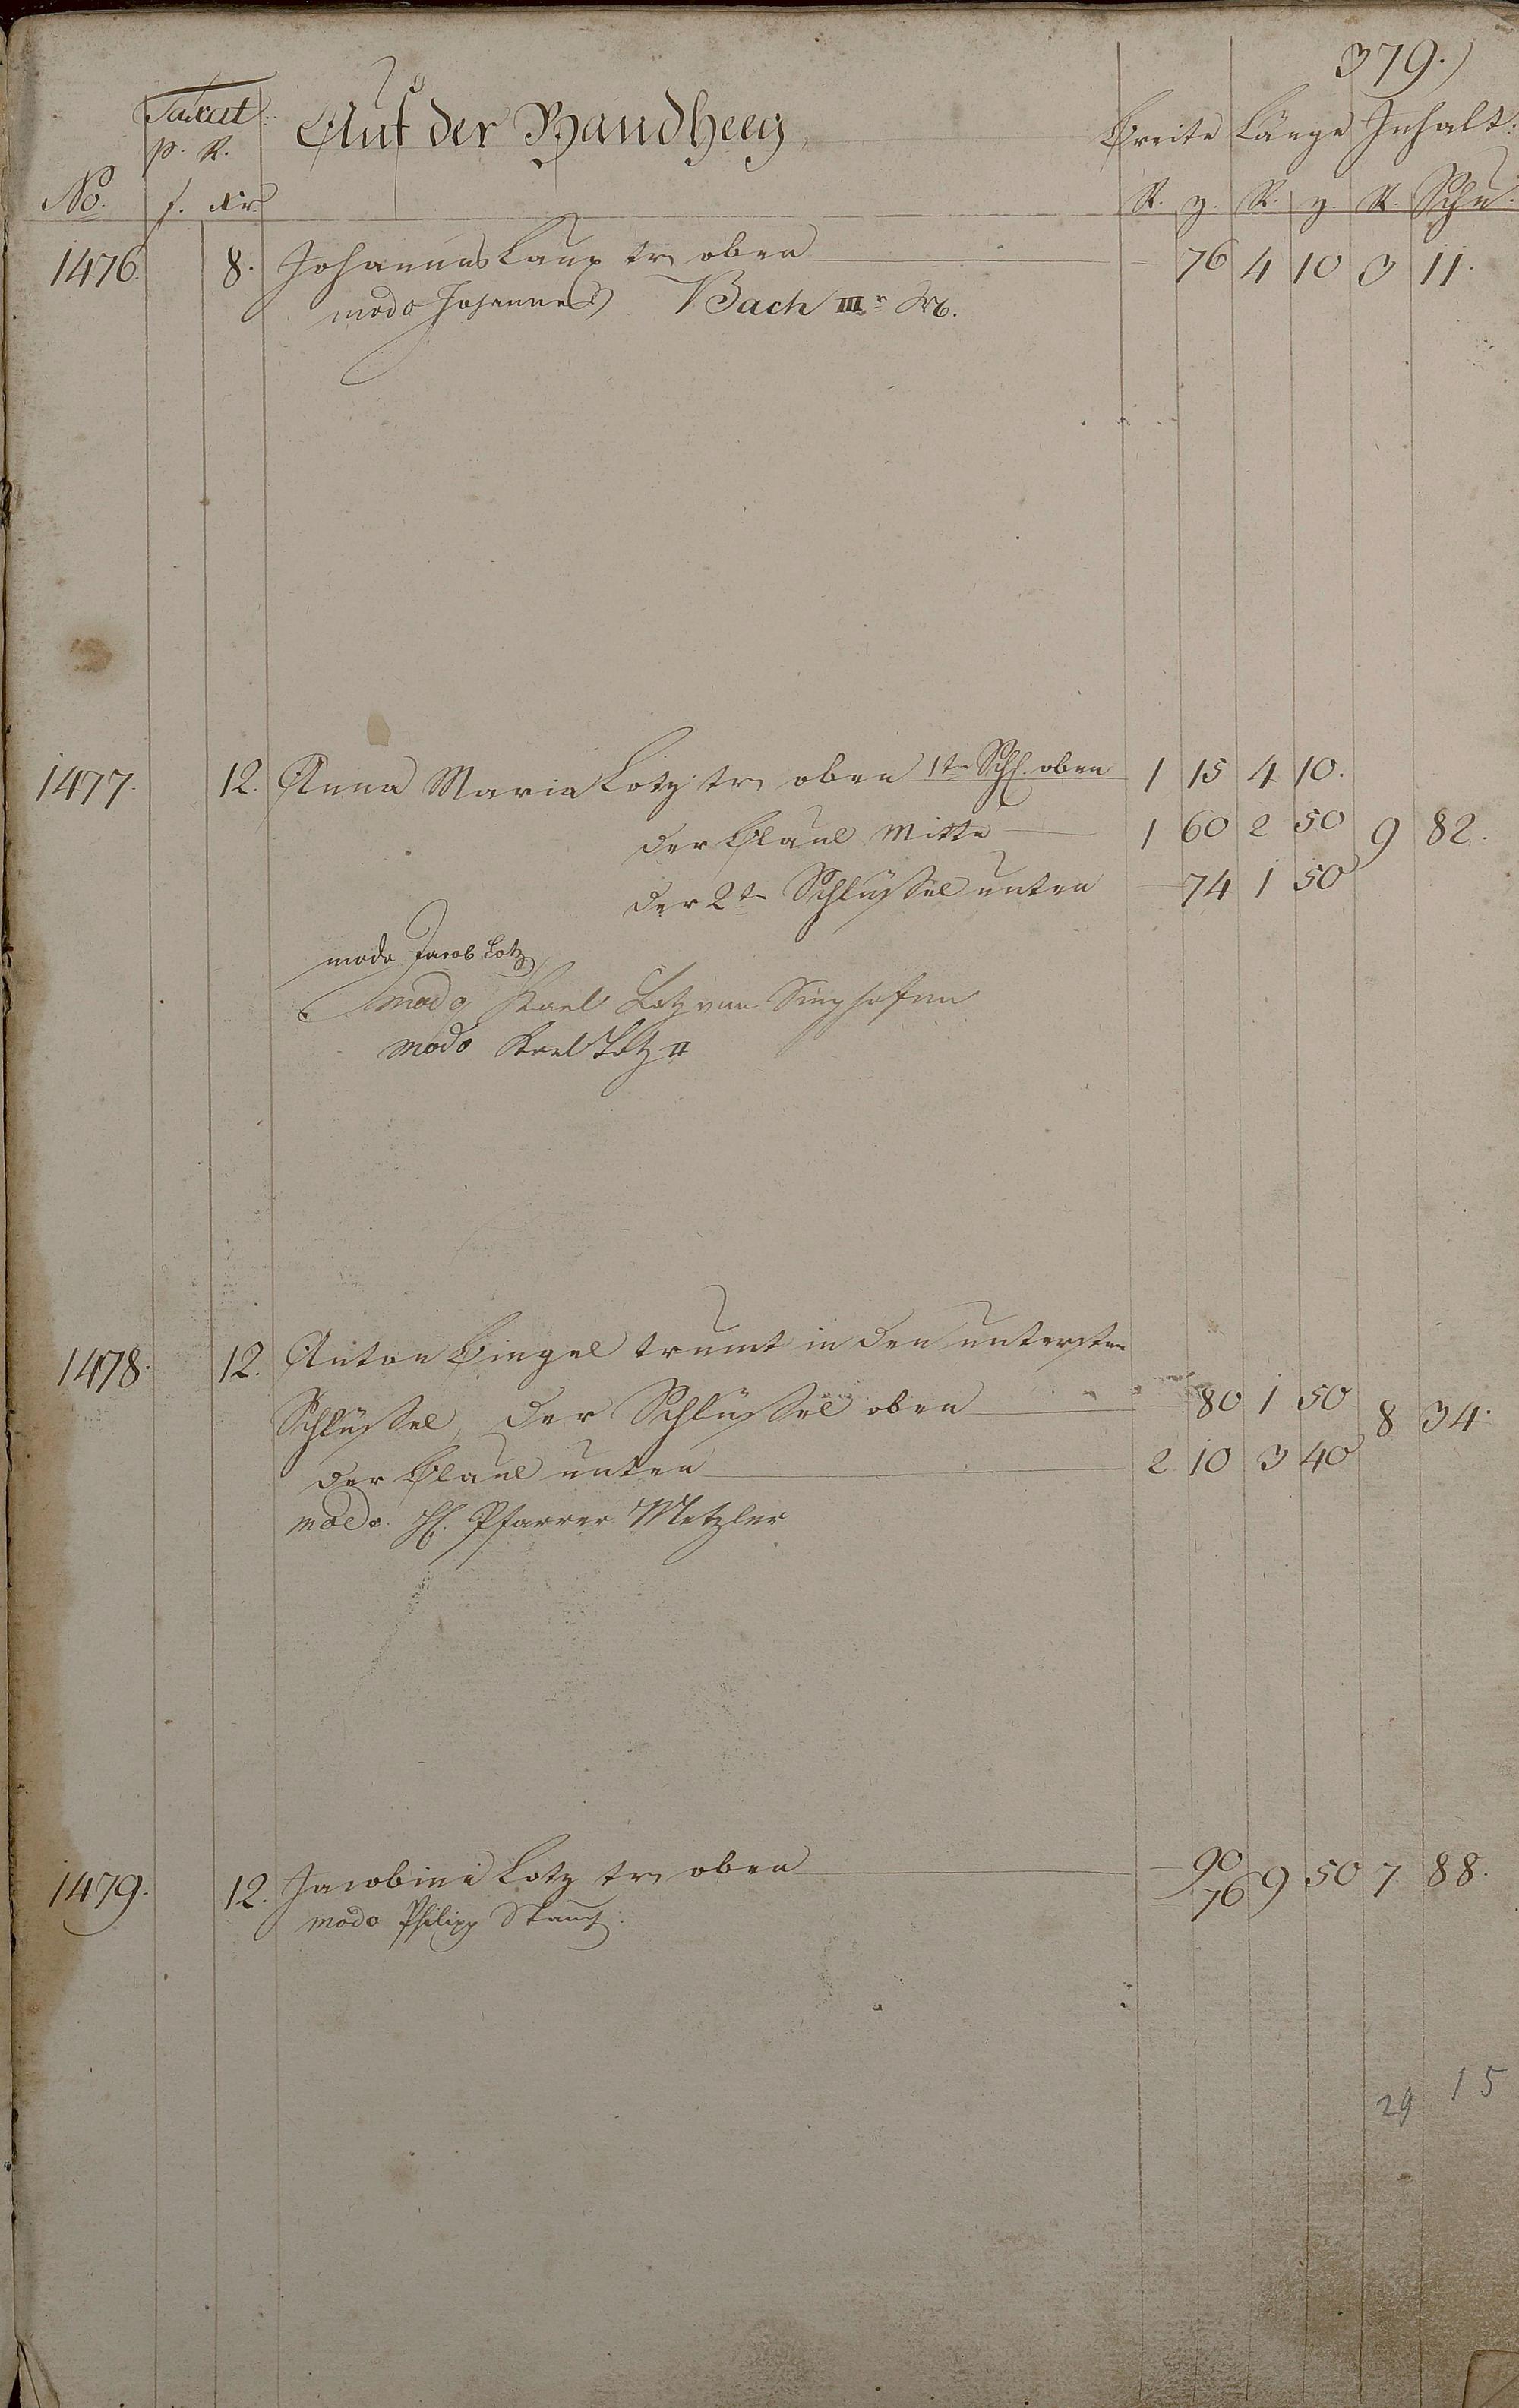 379.)
Taxat:
p. R.
Auf der Bandheeg
Breite Länge Inhalt:
No. f. Xr. R. z. R. z. R. Schu.
1476. 8. Johannes Laux tr. oben — 76 4 10 3 11.
modo Johannes Bach IIIr
1477. 12. Anna Maria Lotz tr. oben 1te Schl. oben 1 15 4 10.
der Plaul Mitte — 1 60 2 50 9 82.
der 2te Schlüssel unten — 74 1 50
modo Jacob Lotz
modo Karl Lotz von Singhofen
modo Karl Lotz II
1478. 12. Anton Bingel trumt in den untersten
Schlüssel, der Schlüssel oben — 80 1 50 8 34.
der Plaul unten — 2 10 3 40
modo H. Pfarrer Metzler
1479. 12. Jacobine Lotz tr. oben — 90 9 50 7 88.
— 76
modo Philipp
29 15